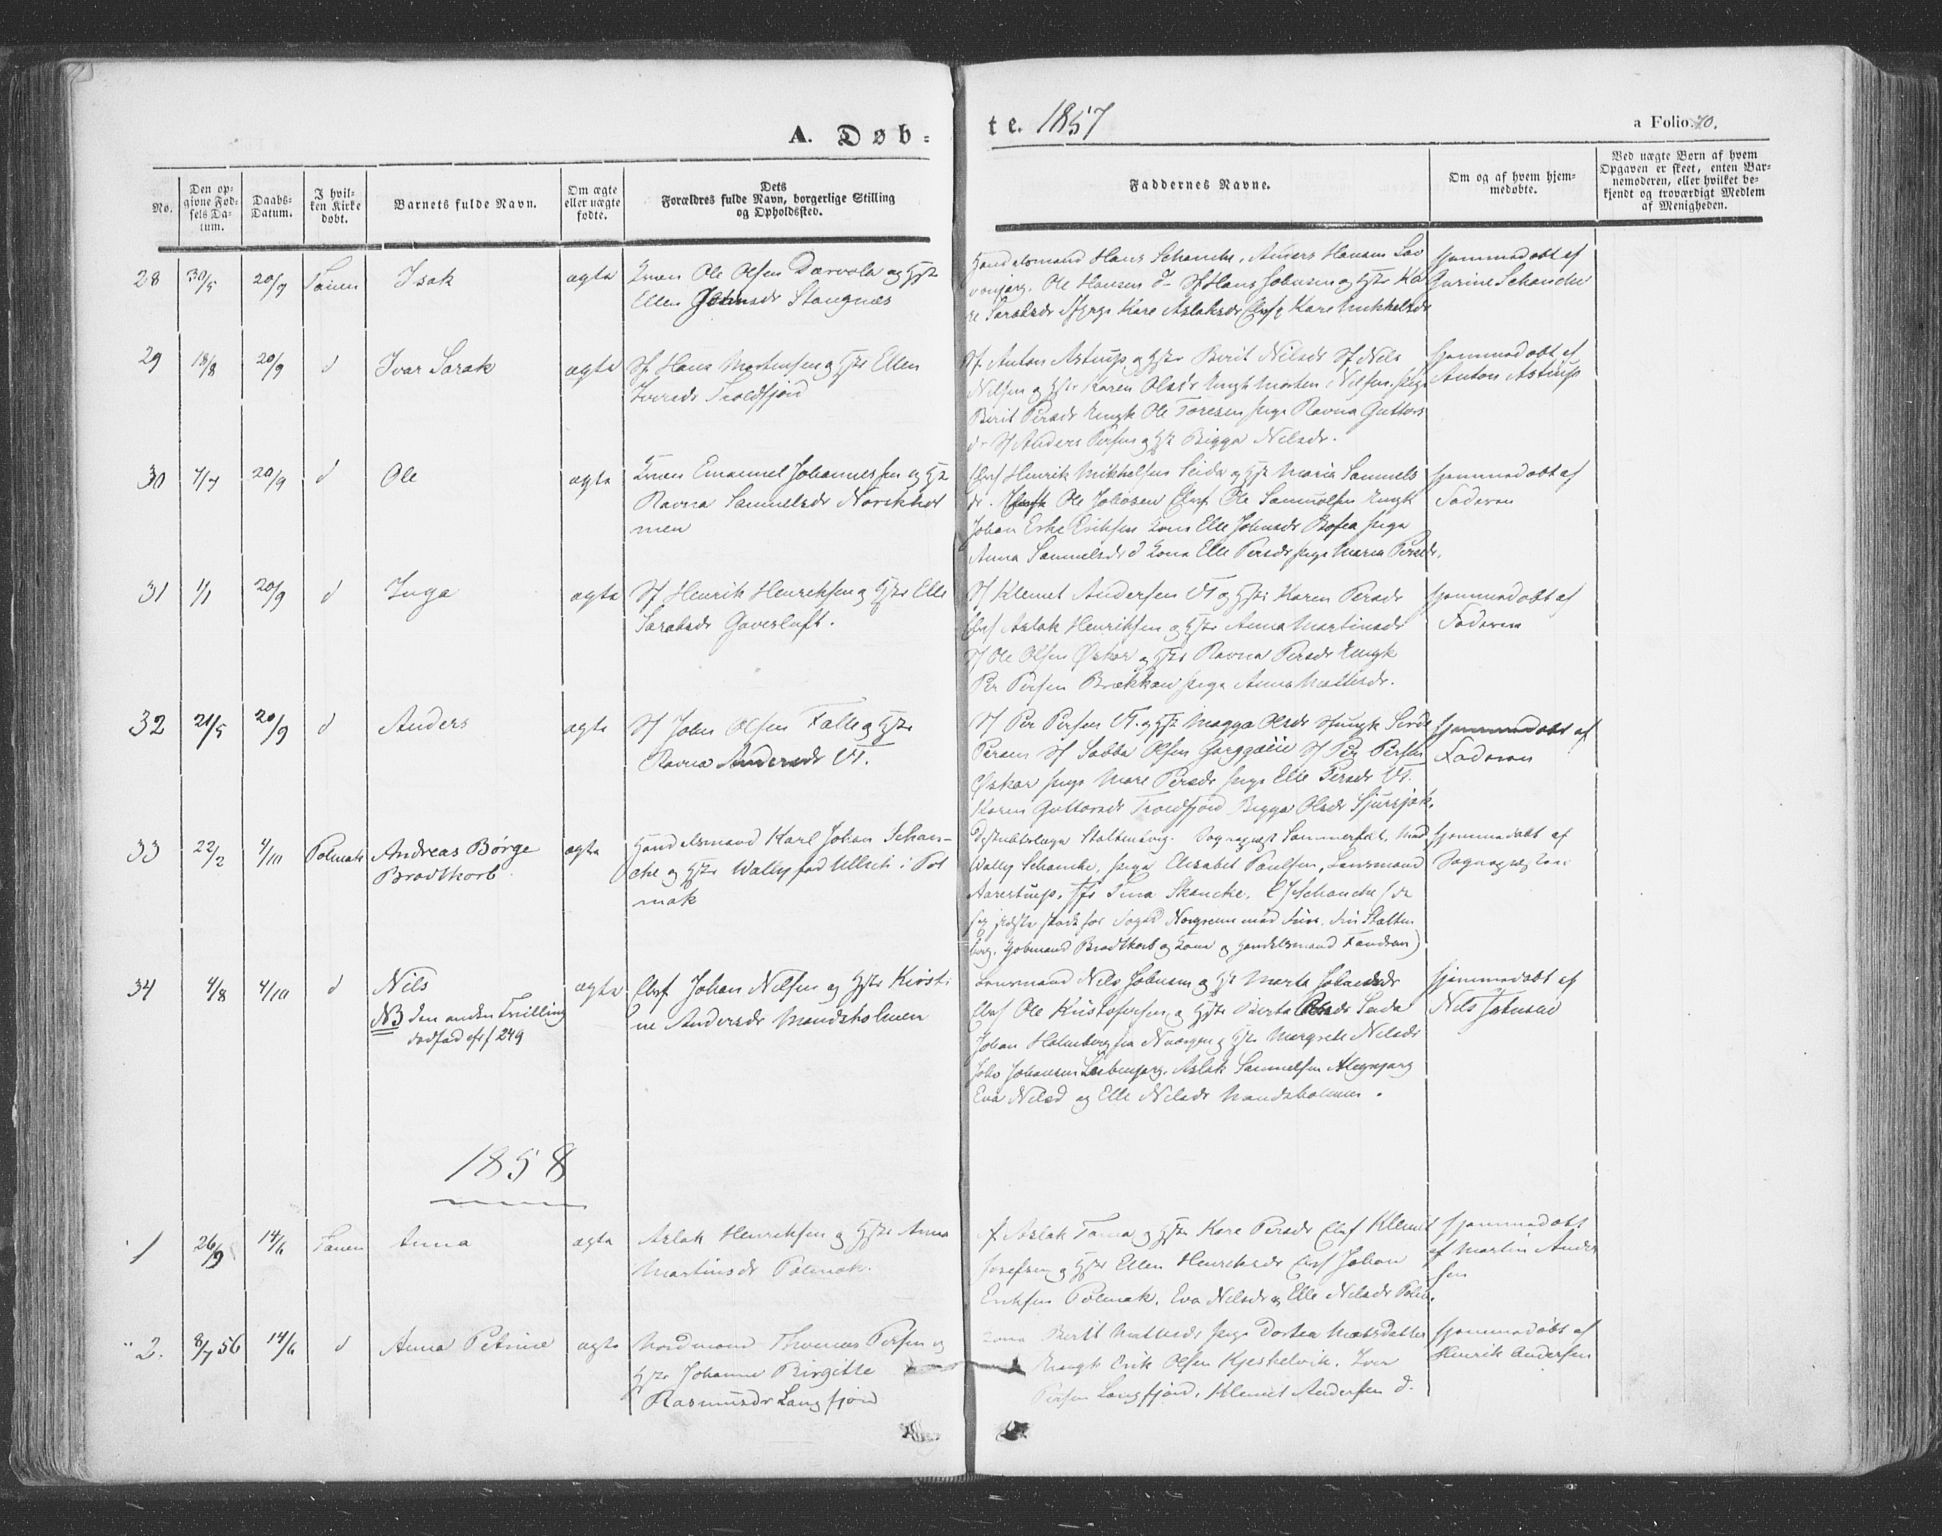 A. Døb=
te. 1857
a Folio 70.
No.
Den op=
givne Fød=
sels Da=
tum.
Daabs=
Datum.
I hvil=
ken Kirke
døbt.
Barnets fulde Navn.
Om ægte
eller uægte
fødte.
Dets
Forældres fulde Navn, borgerlige Stilling
og Opholdssted.
Faddernes Navne.
Om og af hvem hjem=
medøbte.
Ved uægte Børn af hvem
Opgaven er skeet, enten Bar=
nemoderen, eller hvilket be=
kjendt og troværdigt Medlem
af Menigheden.
28 30/5 20/9 Tanen Isak ægte
Kvæn Ole Olsen Dærvola og Hstr
Ellen Johnsdr Stangnæs
Handelsmand Hans Schanche, Anders Hansen
Ole Hansen Sf Hans Johnsen og Hstr Ka
Kare Aslaksdr Kare Mikkelsdr
hjemmedøbt af
Gurine Schanche
29 18/8 20/9 d Ivar Sarak ægte
Sf. Hans Mortensen og Hstr Ellen
Iversdr Troldfjord
Sf. Anton Astrup og Hstr Berit Nilsdr Sf Nils
Nilsen og Hstr Karen Olsdr Ungk Morten Nilsen, Pige
Berit Persdr Ungk Ole Toresen Pige Ravna Guttors
dr Sf Anders Persen og Hst Bigga Nilsdr.
hjemmedøbt af
Anton Astrup
30 7/7 20/9 d Ole ægte
Kvæn Emanuel Johannessen og Hst
Ravna Samuelsdr
men
Elvf Henrik Mikkelsen Seida og Hst Maria Samuels
dr. Ole Johnsen Elvf. Ole Samuelsen Ungk
Johan Eriksen Kone Elle Johnsdr Bosea Pige
Anna Samuelsdr d Kone Elle Persdr Pige Maria Persdr.
hjemmedøbt af
Faderen
31 1/1 20/9 d Inga ægte
Sf Henrik Henriksen og Hstr Elle
Saraksdr Gaverluft.
Sf Klemet Andersen og Hstr Karen Persdr
Elvf Aslak Henriksen og Hstr Anna Martinsdr
Sf Ole Olsen Østør og Hstr Ravna Persdr Ungk
Per Persen Brækkan Pige Anna Mattisdr.
hjemmedøbt af
Faderen
32 21/5 20/9 d Anders ægte
Sf John Olsen Falle og Hstr
Ravna Andersdr VT.
Sf Per Persen VT. og Hstr Magga Olsdr
Persen Sf Sabba Olsen Sf Per Persen
Pige Mare Persdr Pige Elle Persdr VT.
Karen Guttorsdr Troldfjord Bigga Olsdr
hjemmedøbt af
Faderen
33 22/2 4/10 Polmak Andreas Børge
Brodtkorb ægte
Handelsmand Karl Johan Schan=
che og Hstr Wally fød Ullich i Pol
mak
Distriktslæge Stoltenberg. Sogneprest Sommerfelt, Mad
Wally Schanche, Pige Elisabet Paulsen, Lensmand
Aarestrup, Tina Skancke. Schanche (de
for Foged Norgreen med Frue, Stolten
berg, Brodtkorb og Kone og Handelsmand Fandrem)
hjemmedøbt af
Sognepræsten
34 4/8 4/10 d Nils ægte
NB den anden Tvilling
dødfød cfr f 249
Elvf Johan Nilsen og Hstr Kirsti
ne Andersdr Mandsholmen
Lensmand Nils Johnsen og Hst Marta Johnsdr
Elvf Ole Kristofersen og Hstr Berta Olsdr Seida
Johan Holmberg fra og Hstr Margrete Nilsdr
John Johansen Aslak Samuelsen
Eva Nilsd og Elle Nilsdr Mandsholmen.
hjemmedøbt af
Nils Johnsen
1858
1 26/9 14/6 Tanen Anna ægte
Aslak Henriksen og Hstr Anna
Martinsdr Polmak.
Aslak og Hstr Kare Persdr Elvf Klemet
Josefsen og Hstr Ellen Henriksdr Elvf Johan
Eriksen Polmak. Eva Nilsdr og Elle Nilsdr
hjemmedøbt
af Martin Ander
sen
2. 8/7 56 14/6 d Anna Petrine ægte
Nordmand Thomas Persen og
Hstr Johanne Birgitte
Rasmusdr Langfjord
Kone Berit Mattisdr Pige Dortea Matsdatter
Ungk Erik Olsen Kjeskelvik. Iver
Persen Langfjord, Klemet Andersen d.
hjemmedøbt af
Henrik Andersen